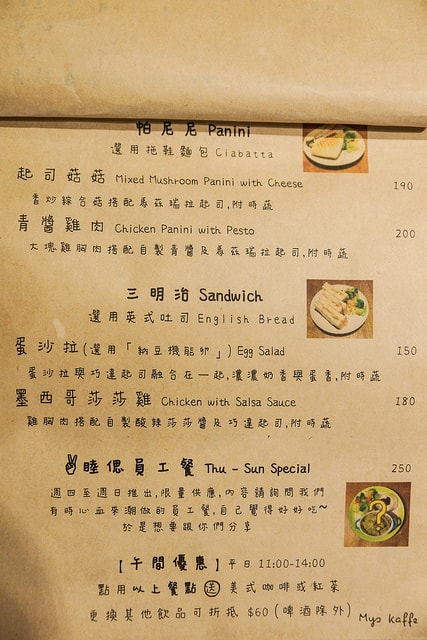 帕尼尼 Panini
選用拖鞋麵包 Ciabatta
起司菇菇 Mixed Mushroom Panini with Cheese 190
香炒綜合菇搭配馬茲瑞拉起司,附時蔬
青醬雞肉 Chicken Panini with Pesto 200
大塊雞胸肉搭配自製青醬及馬茲瑞拉起司,附時蔬
三明治 Sandwich
選用英式吐司 English Bread
蛋沙拉(選用「納豆機能卵」) Egg Salad 150
蛋沙拉與巧達起司融合在一起,濃濃奶香與蛋香,附時蔬
墨西哥莎莎雞 Chicken with Salsa Sauce 180
雞胸肉搭配自製酸辣莎莎醬及巧達起司,附時蔬
睦偲員工餐 Thu - Sun Special 250
週四至週日推出,限量供應,內容請詢問我們
有時心血來潮做的員工餐,自己覺得好好吃~
於是想要跟你們分享
【午間優惠】平日 11:00-14:00
點用以上餐點 送 美式咖啡或紅茶
更換其他飲品可折抵 $60 (啤酒除外)
Myo Kaffe